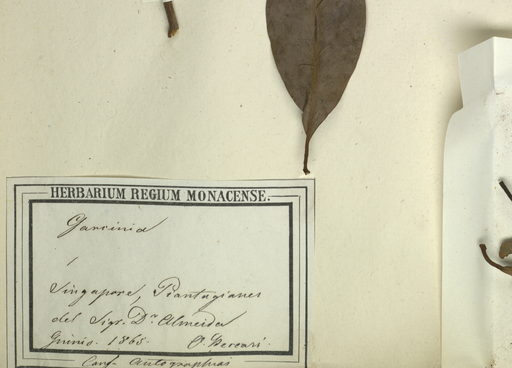 HERBARIUM REGIUM MONACENSE.
Garcinia
Singapore, Piantagiones
del Sigr. Dr. Almeida
Guinio. 1865. O. Beccari.
Conf. Autographias